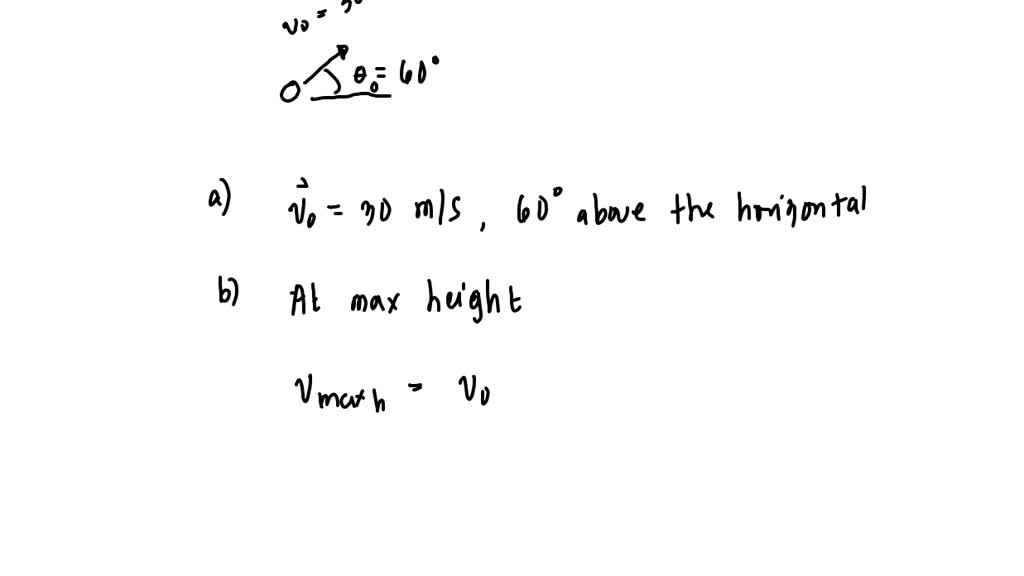 v₀ = 30
θ₀ = 60°
a) v⃗₀ = 30 m/s, 60° above the horizontal
b) At max height
v max h = v₀